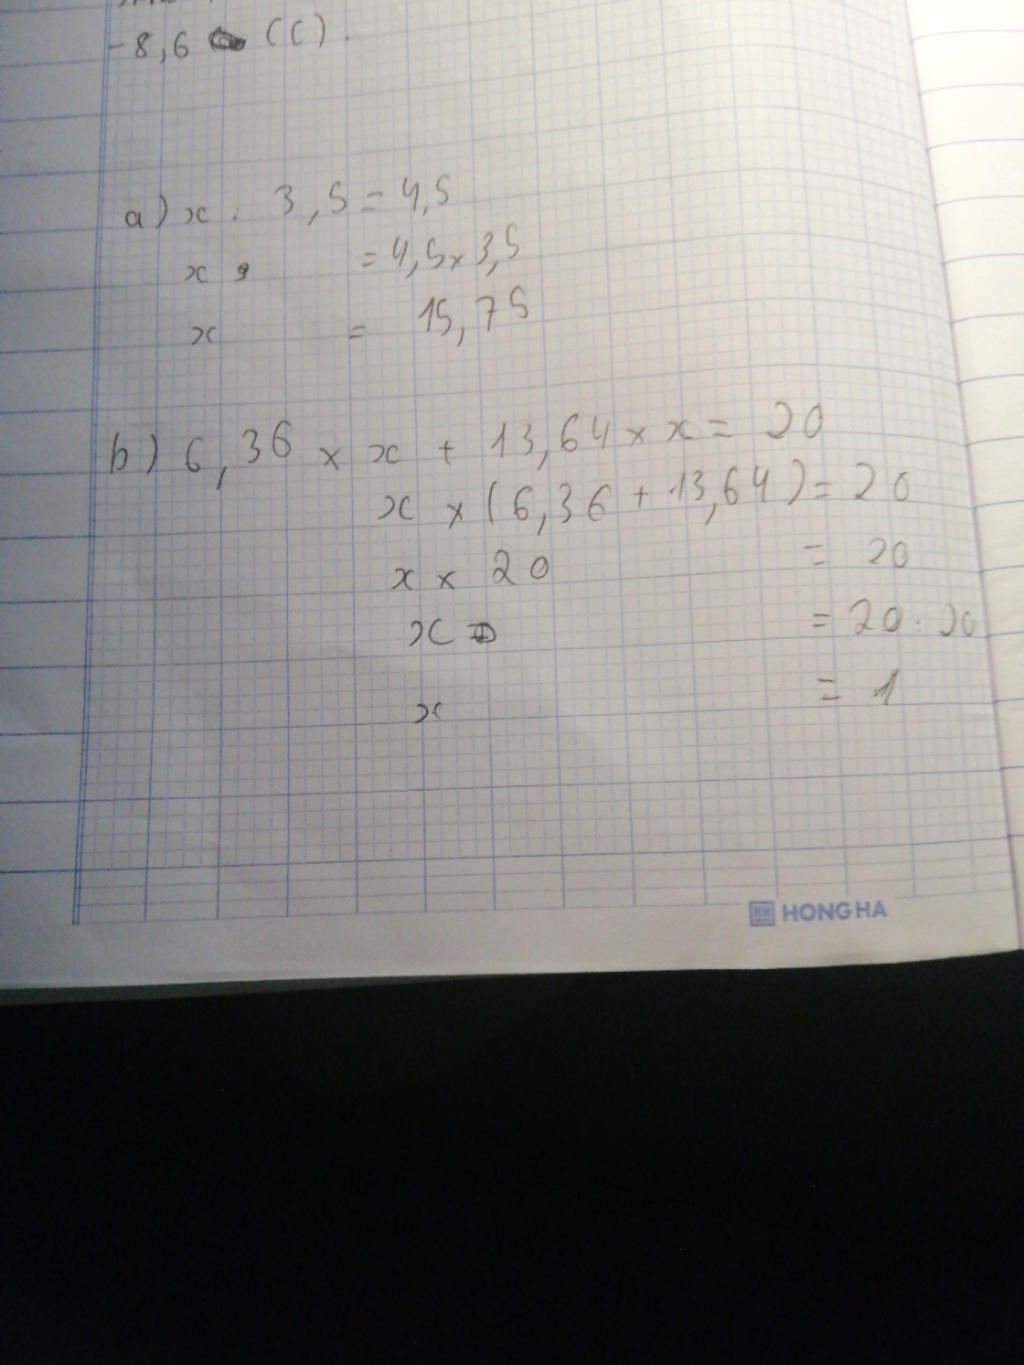 -8,6 (C).
a) x : 3,5 = 4,5
x = 4,5 x 3,5
x = 15,75
b) 6,36 x x + 13,64 x x = 20
x x (6,36 + 13,64) = 20
x x 20 = 20
x = 20 : 20
x = 1
HH HONG HA